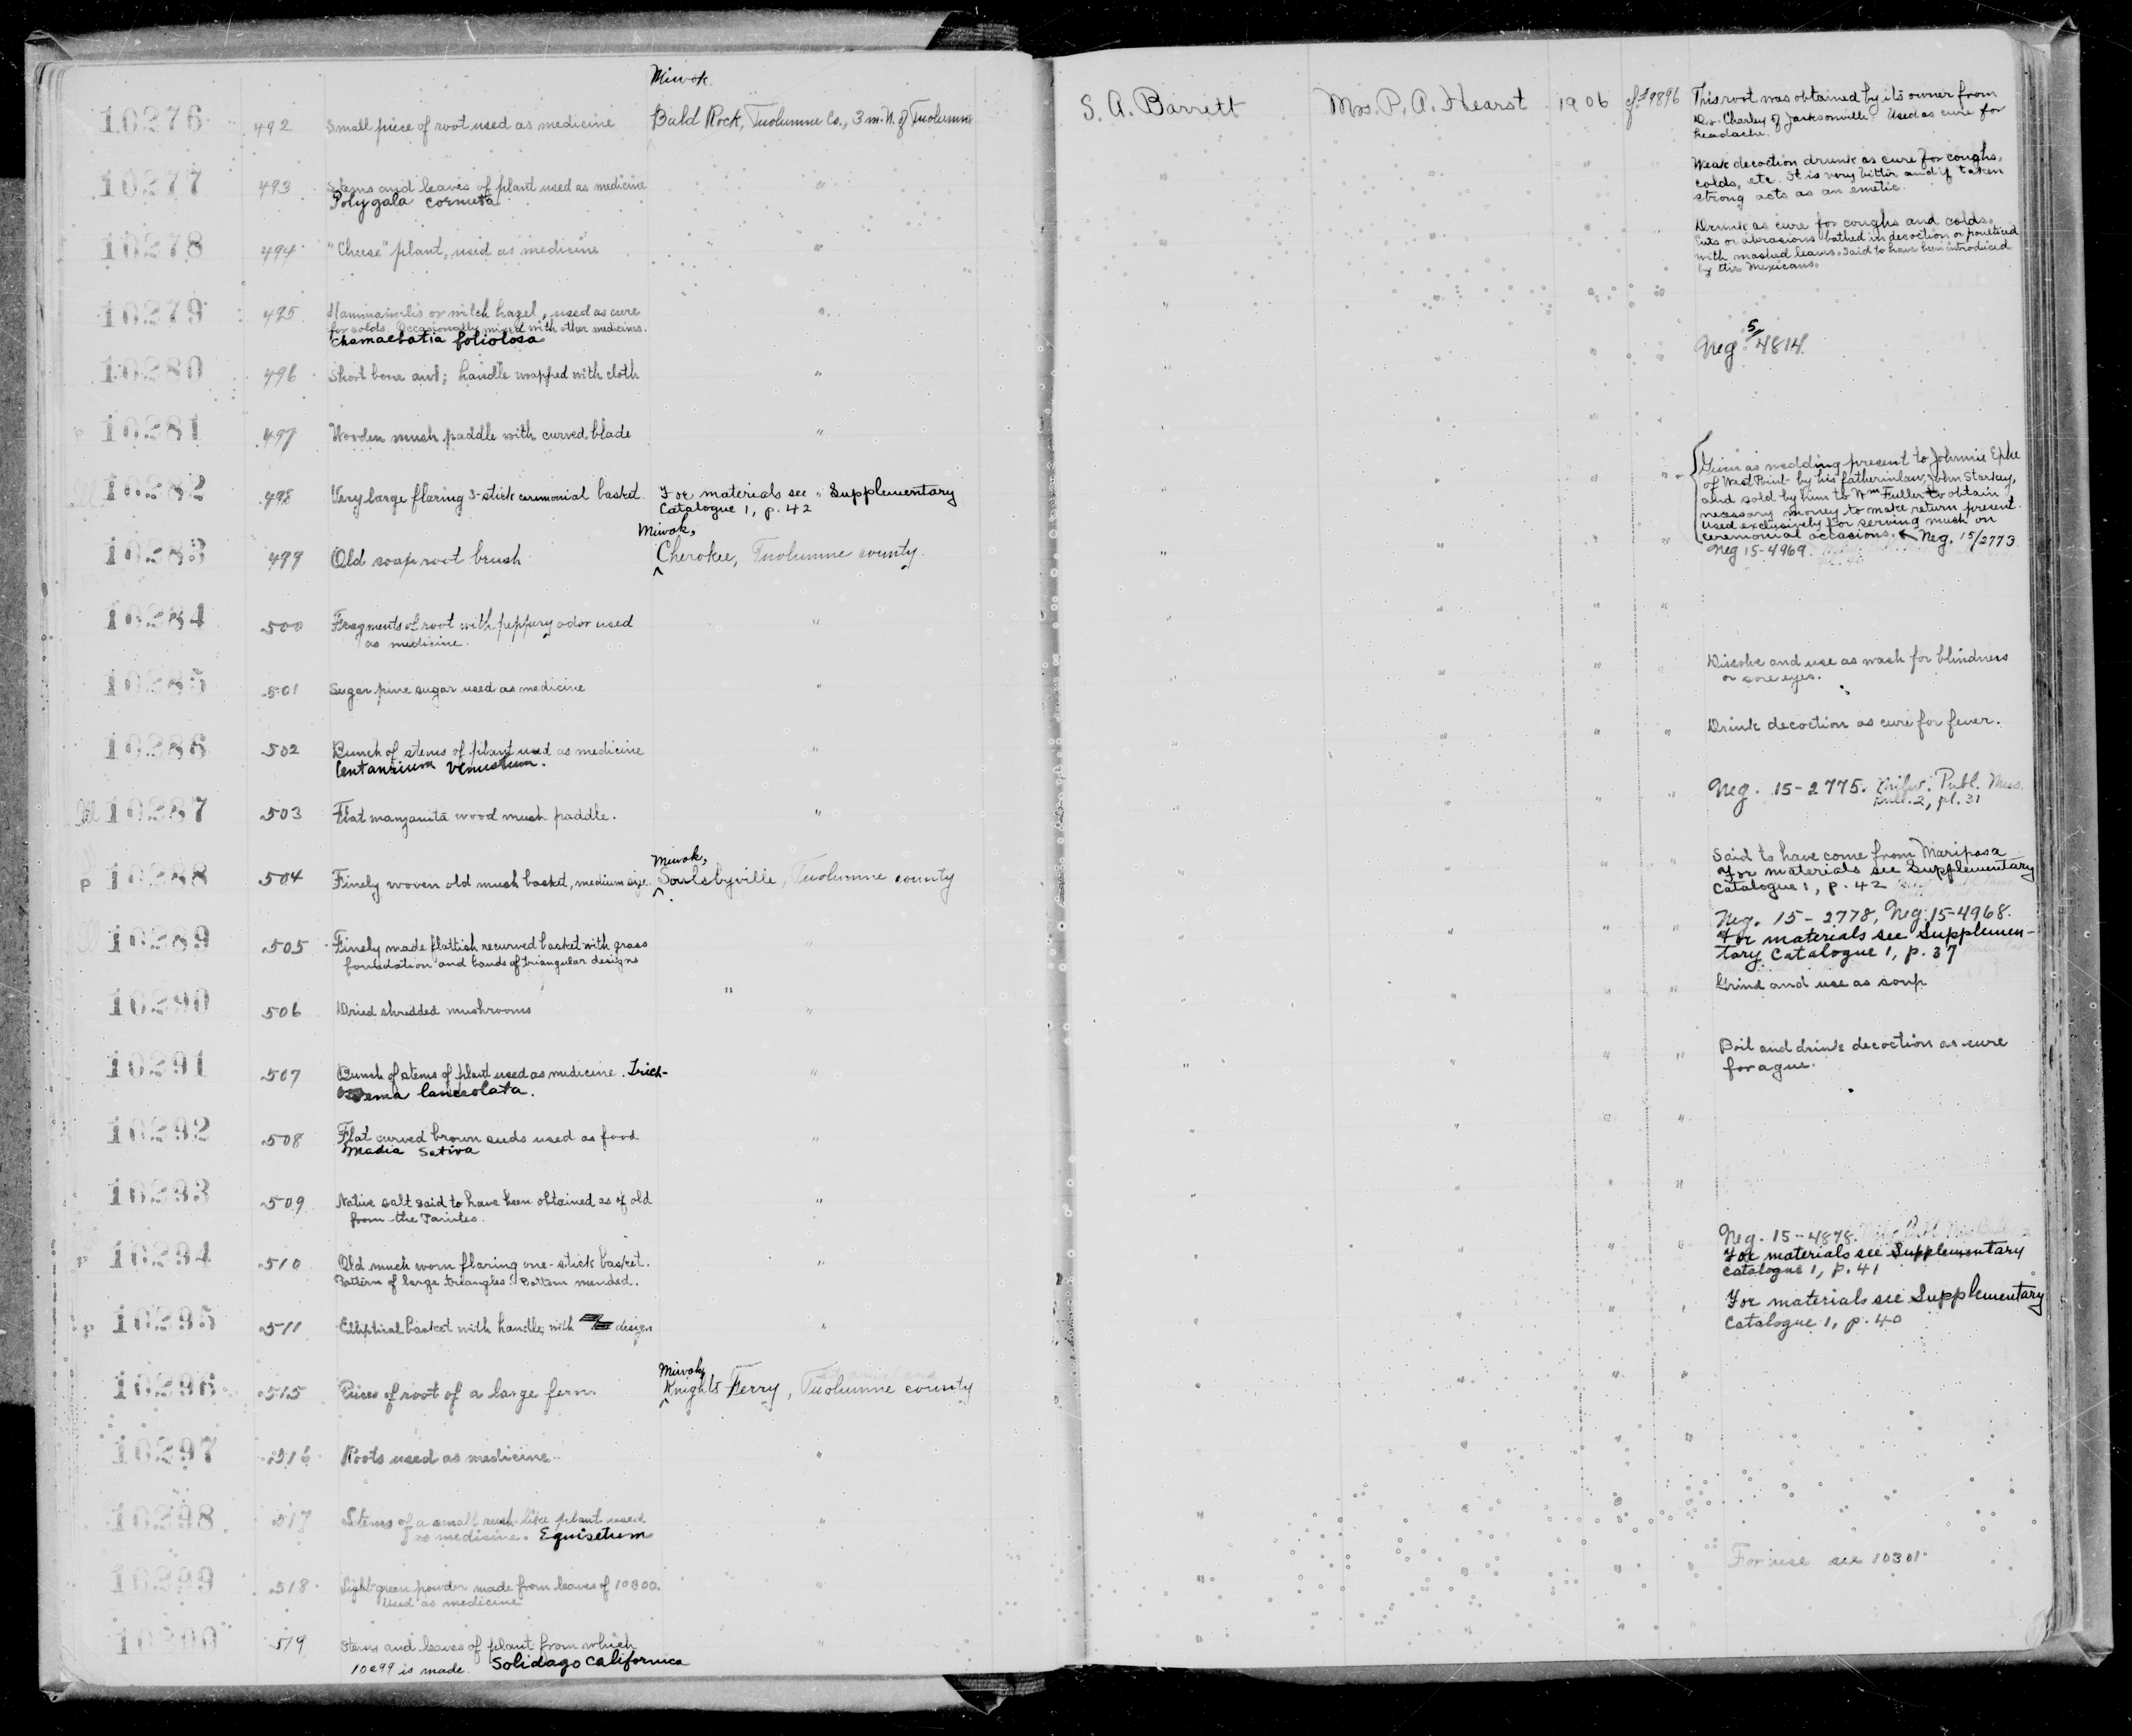 Miwok
10276 492 Small piece of root used as medicine Bald Rock, Tuolumne Co., 3 m. N. of Tuolumne S. A. Barrett Mrs. P. A. Hearst 1906 cf. #9896 This root was obtained by its owner from
Dr. Charley of Jacksonville. Used as cure for
headache.
10277 493 Stems and leaves of plant used as medicine " " " " " Weak decoction drunk as cure for coughs,
Polygala cornuta colds, etc. It is very bitter and if taken
strong acts as an emetic.
10278 494 "Cheese" plant, used as medicine " " " " " Drunk as cure for coughs and colds.
Cuts or abrasions bathed in decoction or poulticed
with mashed leaves. Said to have been introduced
by the Mexicans.
10279 495 Hammamelis or witch hazel, used as cure " " " " "
for colds. Occasionally mixed with other medicines.
Chamaebatia foliolosa
10280 496 Short bone awl; handle wrapped with cloth " " " " " Neg. 5/4814.
10281 497 Wooden mush paddle with curved blade " " " " "
10282 498 Very large flaring 3-stick ceremonial basket. For materials see Supplementary " " " " Given as wedding present to Johnnie Ephe
Catalogue 1, p. 42 of West Point by his father in law, John Starkey,
and sold by him to Wm Fuller to obtain
necessary money to make return present.
Used exclusively for serving mush on
ceremonial occasions. Neg. 15/2773
Miwok,
10283 499 Old soap root brush Cherokee, Tuolumne county. " " " " Neg 15-4969.
10284 500 Fragments of root with peppery odor used " " " "
as medicine.
10285 501 Sugar pine sugar used as medicine " " " " " Dissolve and use as wash for blindness
or sore eyes.
10286 502 Bunch of stems of plant used as medicine " " " " " Drink decoction as cure for fever.
Centaurium venustum.
10287 503 Flat manzanita wood mush paddle. " " " " Neg. 15-2775. Milw. Publ. Mus.
Bull. 2, pl. 31
Miwok,
10288 504 Finely woven old mush basket, medium size. Soulsbyville, Tuolumne county " " " " Said to have come from Mariposa
For materials see Supplementary
Catalogue 1, p. 42
10289 505 Finely made flattish recurved basket with grass " " " " " Neg. 15-2778, Neg. 15-4968.
foundation and bands of triangular designs For materials see Supplemen-
tary Catalogue 1, p. 37
10290 506 Dried shredded mushrooms " " " " " Grind and use as soup
10291 507 Bunch of stems of plant used as medicine. Trich- " " " " " Boil and drink decoction as cure
ostema lanceolata. for ague.
10292 508 Flat curved brown seeds used as food " " " " "
Madia Sativa
10293 509 Native salt said to have been obtained as of old " " " "
from the Paiutes.
10294 510 Old much worn flaring one-stick basket. " " " " Neg. 15-4878.
Pattern of large triangles. Bottom mended. For materials see Supplementary
Catalogue 1, p. 41
10295 511 Elliptical basket with handle, with design " " " " For materials see Supplementary
Catalogue 1, p. 40
Miwok,
10296 515 Pieces of root of a large fern. Knights Ferry, Tuolumne county " " " "
10297 516 Roots used as medicine " " " "
10298 517 Stems of a small rush-like plant used " " " "
as medicine. Equisetum
10299 518 Light green powder made from leaves of 10300. " " " " For use see 10301.
Used as medicine
10300 519 Stems and leaves of plant from which " " " "
10299 is made. Solidago Californica